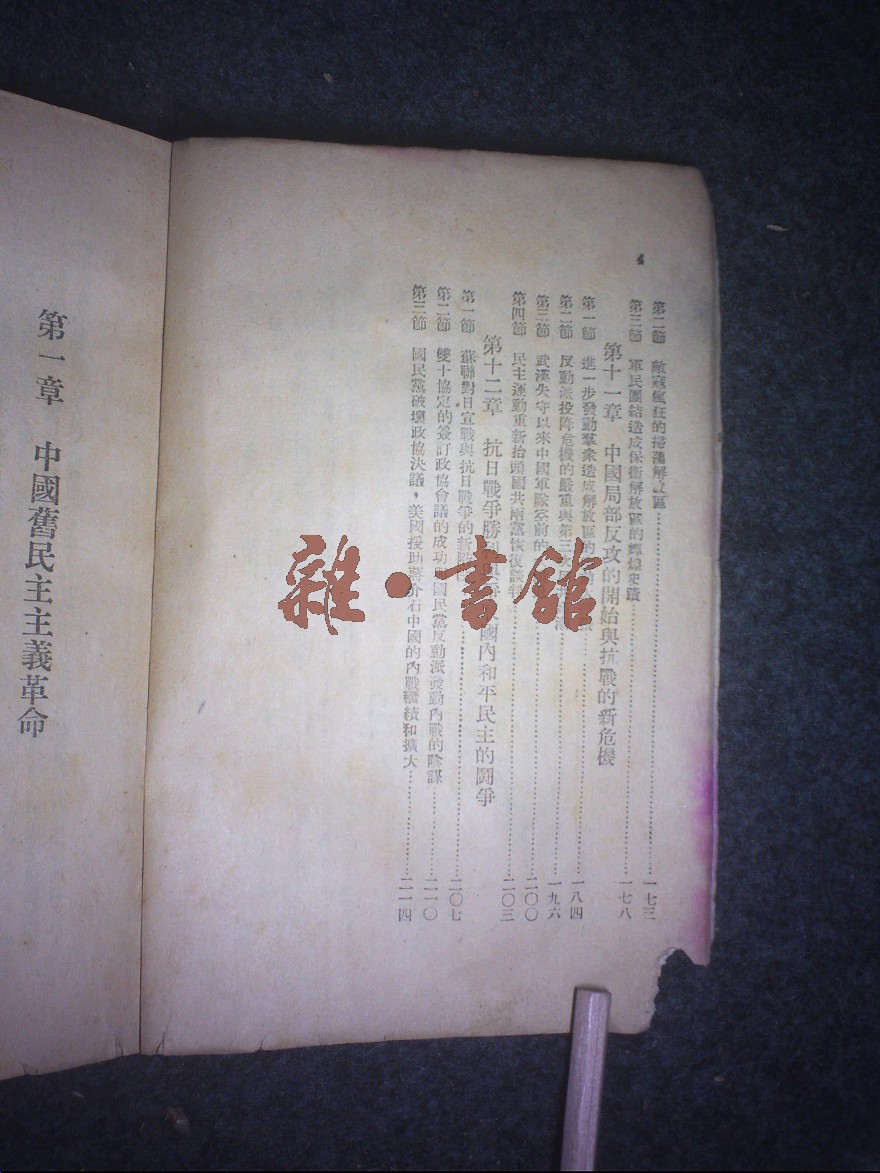 4
第二節 敵寇瘋狂的掃蕩解放區……一七三
第三節 軍民團結造成保衛解放區的輝煌史蹟……一七八
第十一章 中國局部反攻的開始與抗戰的新危機
第一節 進一步發動羣衆造成解放區的……一八四
第二節 反動派投降危機的嚴重與第三次……一九六
第三節 武漢失守以來中國軍隊空前的……二〇〇
第四節 民主運動重新抬頭國共兩黨恢復談判……二〇三
第十二章 抗日戰爭勝利與爭取國內和平民主的鬪爭
第一節 蘇聯對日宣戰與抗日戰爭的新……二〇七
第二節 雙十協定的簽訂政協會議的成功與國民黨反動派發動內戰的陰謀……二一〇
第三節 國民黨破壞政協決議，美國援助蔣介石中國的內戰繼續和擴大……二一四
第一章 中國舊民主主義革命
雜·書館